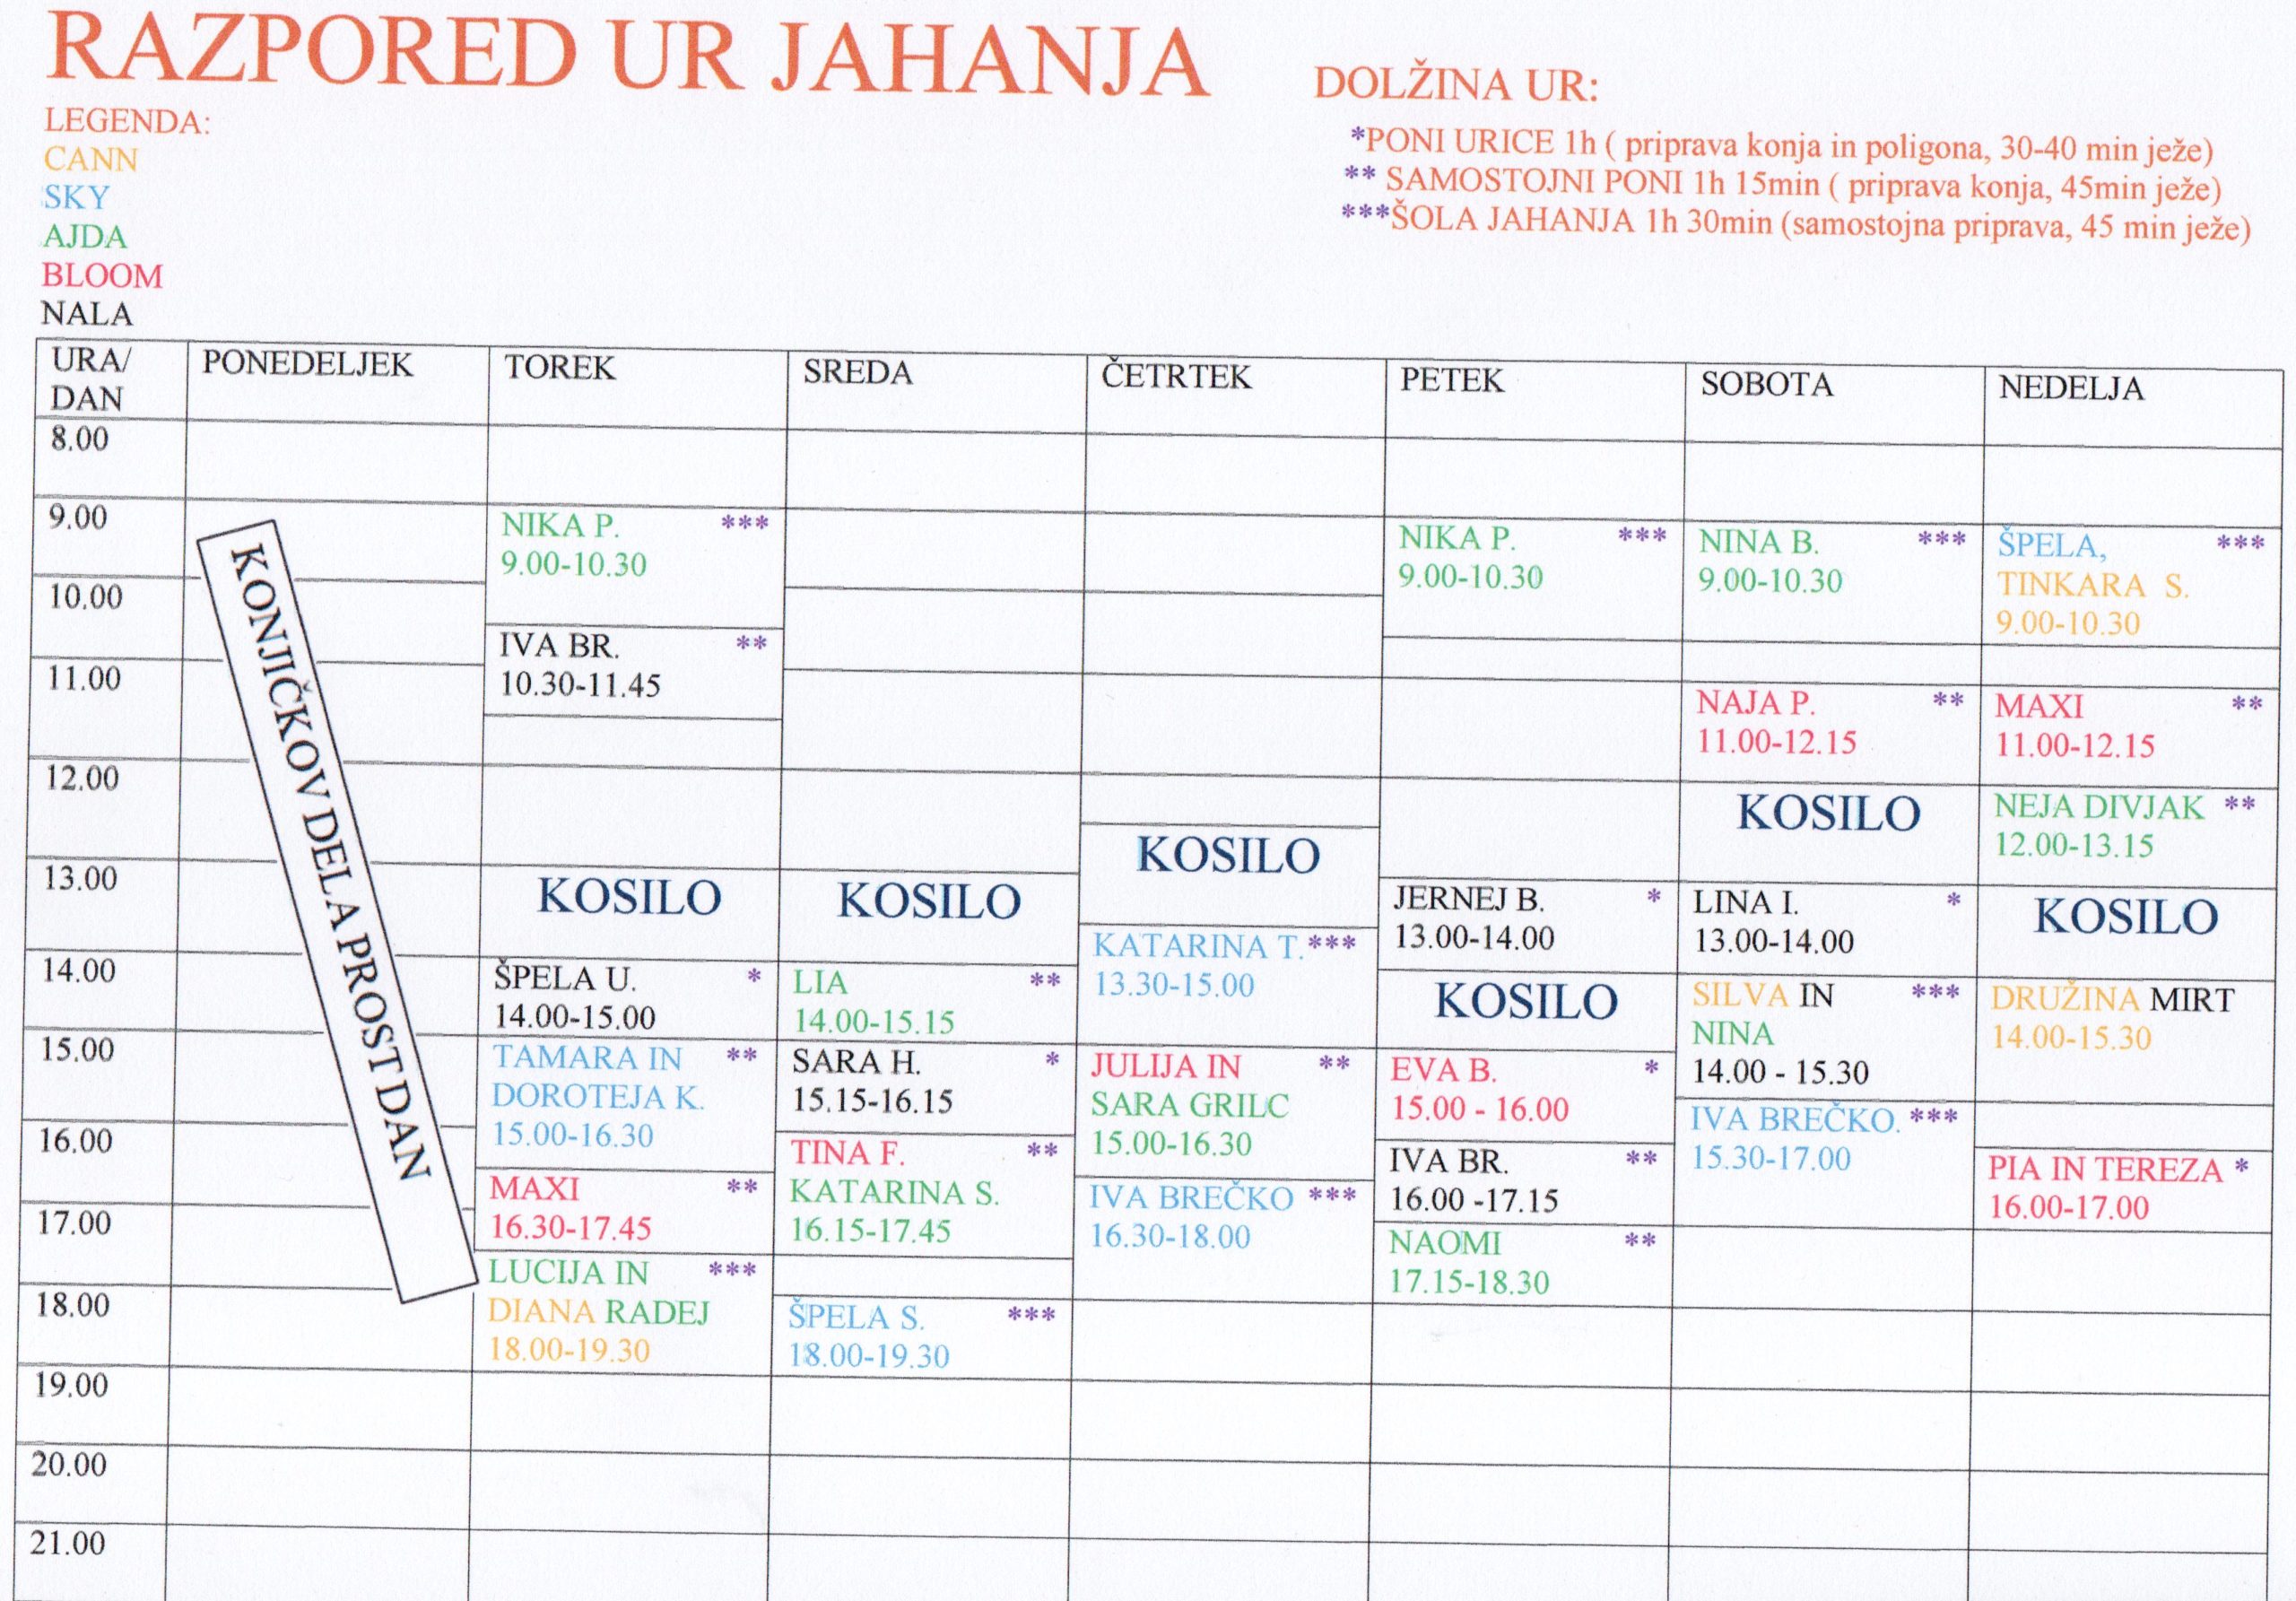 RAZPORED UR JAHANJA
LEGENDA:
CANN
SKY
AJDA
BLOOM
NALA
DOLŽINA UR:
*PONI URICE 1h ( priprava konja in poligona, 30-40 min ježe)
** SAMOSTOJNI PONI 1h 15min ( priprava konja, 45min ježe)
***ŠOLA JAHANJA 1h 30min (samostojna priprava, 45 min ježe)
URA/
DAN
PONEDELJEK
TOREK
SREDA
ČETRTEK
PETEK
SOBOTA
NEDELJA
8.00
9.00
10.00
11.00
12.00
13.00
14.00
15.00
16.00
17.00
18.00
19.00
20.00
21.00
KONJIČKOV DELA PROST DAN
NIKA P. ***
9.00-10.30
IVA BR. **
10.30-11.45
KOSILO
ŠPELA U. *
14.00-15.00
TAMARA IN **
DOROTEJA K.
15.00-16.30
MAXI **
16.30-17.45
LUCIJA IN ***
DIANA RADEJ
18.00-19.30
KOSILO
LIA **
14.00-15.15
SARA H. *
15.15-16.15
TINA F. **
KATARINA S.
16.15-17.45
ŠPELA S. ***
18.00-19.30
KOSILO
KATARINA T.***
13.30-15.00
JULIJA IN **
SARA GRILC
15.00-16.30
IVA BREČKO ***
16.30-18.00
NIKA P. ***
9.00-10.30
JERNEJ B. *
13.00-14.00
KOSILO
EVA B. *
15.00 - 16.00
IVA BR. **
16.00 -17.15
NAOMI **
17.15-18.30
NINA B. ***
9.00-10.30
NAJA P. **
11.00-12.15
KOSILO
LINA I. *
13.00-14.00
SILVA IN ***
NINA
14.00 - 15.30
IVA BREČKO. ***
15.30-17.00
ŠPELA, ***
TINKARA S.
9.00-10.30
MAXI **
11.00-12.15
NEJA DIVJAK **
12.00-13.15
KOSILO
DRUŽINA MIRT
14.00-15.30
PIA IN TEREZA *
16.00-17.00